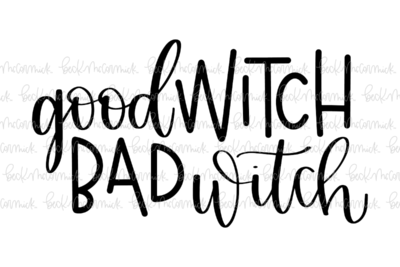 good WITCH
BAD witch